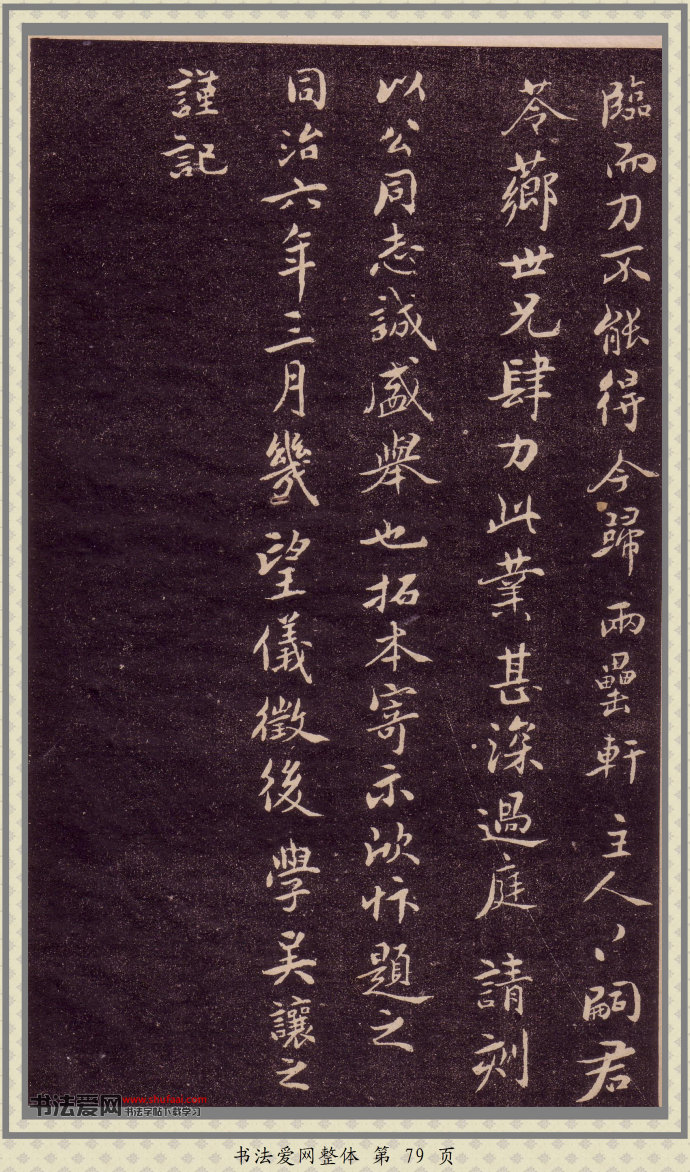 臨而力不能得今歸兩罍軒主人〻嗣君
苓薌世兄肆力此業甚深過庭請刻
以公同志誠盛舉也拓本寄示欣忭題之
同治六年三月幾望儀徵後學吳讓之
謹記
书法爱网
www.shufaai.com
书法字帖下载学习
书法爱网整体 第 79 页